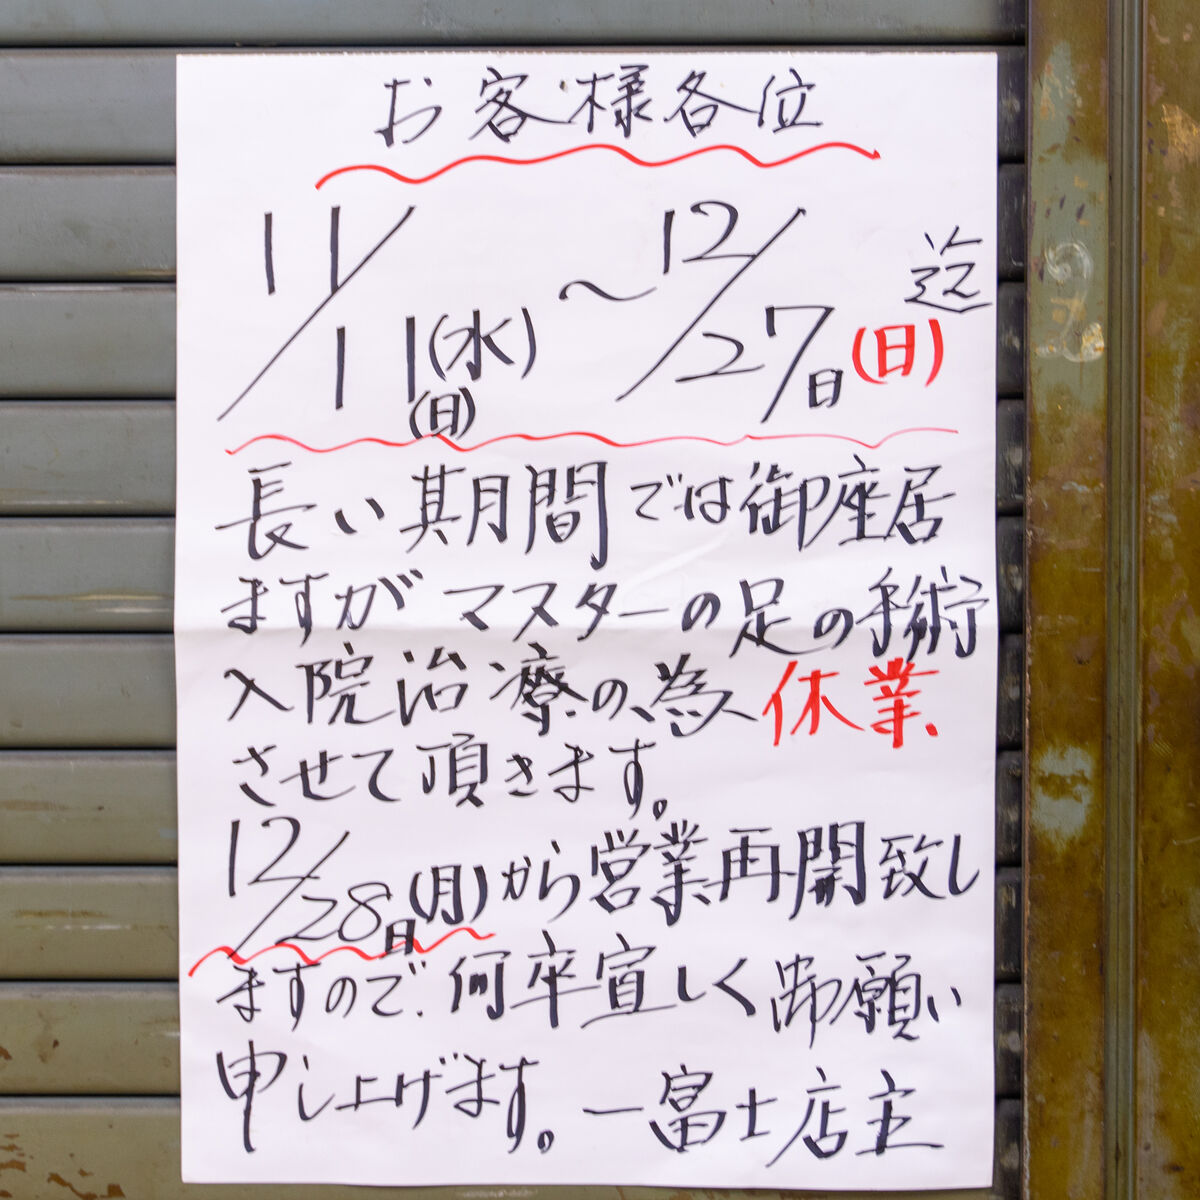 お客様各位
11/11(水)～12/27日(日)迄
(日)
長い期間では御座居
ますがマスターの足の手術
入院治療の為休業
させて頂きます。
12/28日(月)から営業再開致し
ますので、何卒宜しく御願い
申し上げます。一富士店主